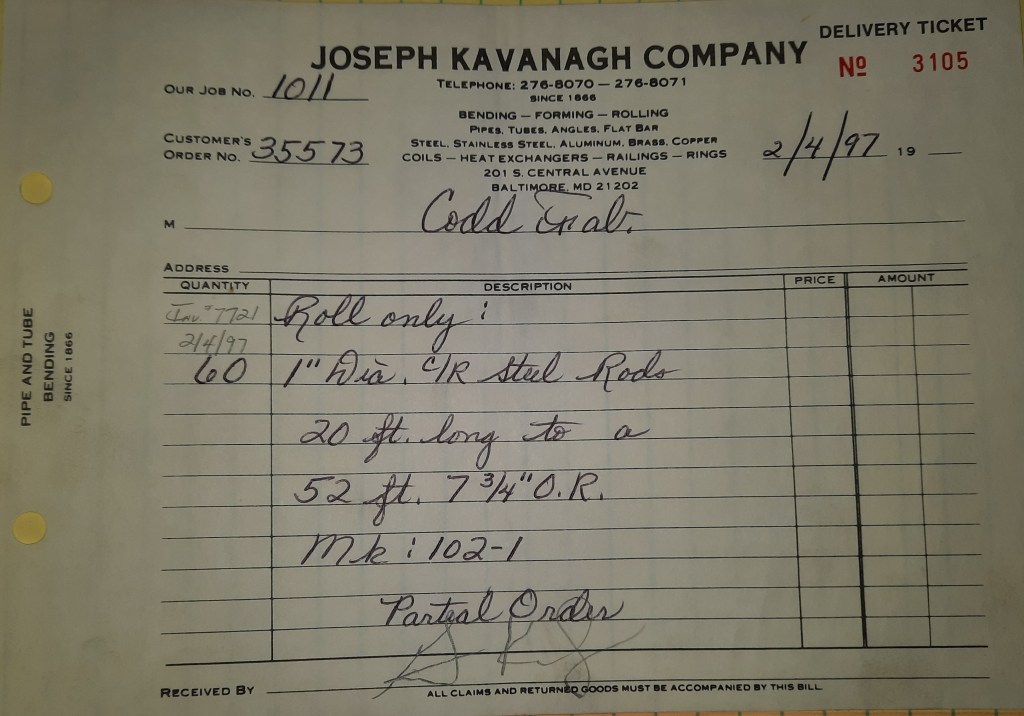 DELIVERY TICKET
JOSEPH KAVANAGH COMPANY
Nº 3105
TELEPHONE: 276-8070 — 276-8071
SINCE 1866
OUR JOB NO. 1011
BENDING — FORMING — ROLLING
PIPES, TUBES, ANGLES, FLAT BAR
CUSTOMER'S ORDER NO. 35573
STEEL, STAINLESS STEEL, ALUMINUM, BRASS, COPPER
COILS — HEAT EXCHANGERS — RAILINGS — RINGS
2/4/97 19
201 S. CENTRAL AVENUE
BALTIMORE, MD 21202
M Codd Fab.
ADDRESS
QUANTITY DESCRIPTION PRICE AMOUNT
Inv. #7721 Roll only:
2/4/97
60 1" Dia. C/R Steel Rods
20 ft. long to a
52 ft. 7 3/4" O.R.
Mk: 102-1
Partial Order
RECEIVED BY
ALL CLAIMS AND RETURNED GOODS MUST BE ACCOMPANIED BY THIS BILL.
PIPE AND TUBE
BENDING
SINCE 1866